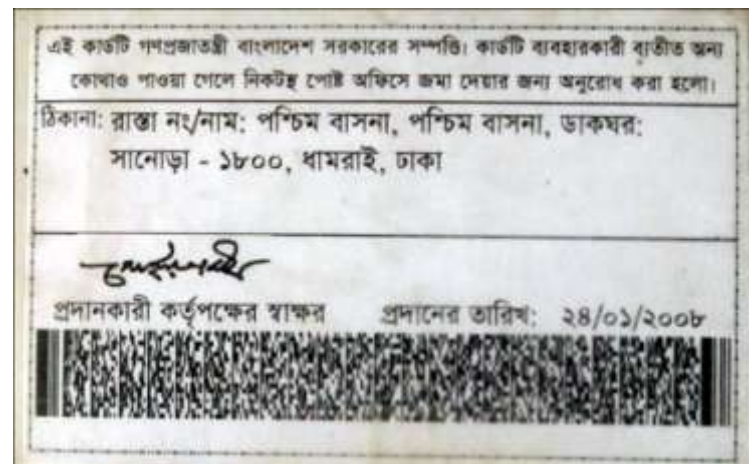 এই কার্ডটি গণপ্রজাতন্ত্রী বাংলাদেশ সরকারের সম্পত্তি। কার্ডটি ব্যবহারকারী ব্যতীত অন্য
কোথাও পাওয়া গেলে নিকটস্থ পোষ্ট অফিসে জমা দেয়ার জন্য অনুরোধ করা হলো।
ঠিকানা: রাস্তা নং/নাম: পশ্চিম বাসনা, পশ্চিম বাসনা, ডাকঘর:
সানোড়া - ১৮০০, ধামরাই, ঢাকা
প্রদানকারী কর্তৃপক্ষের স্বাক্ষর প্রদানের তারিখ: ২৪/০১/২০০৮